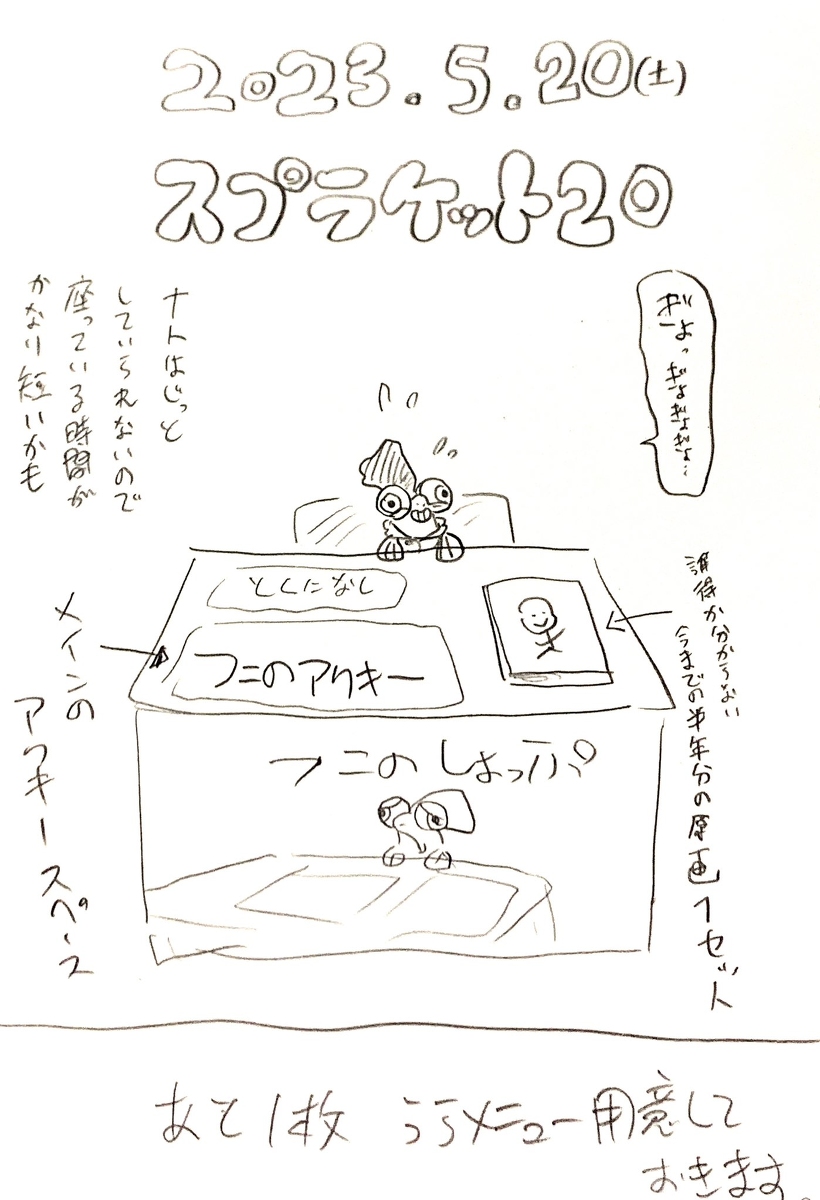 2023.5.20(土)
スプラケット20
ぎょっ ぎょぎょぎょ…
ナトはじっと
していられないので
座っている時間が
かなり短いかも
とくになし
フニのアクキー
メインの
アクキースペース
誰得か分からない
今までの半年分の原画1セット
フニのしょっぷ
あと1枚 うらメニュー用意して
おきます。